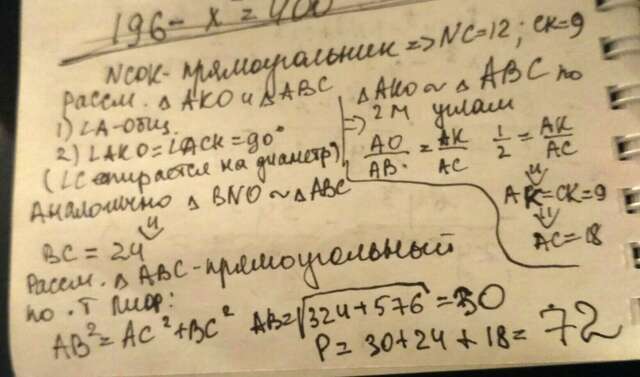 196 - x² = 400
NCOK - прямоугольник => NC=12; CK=9
Рассм. △ AKO и △ABC
1) ∠A-общ.
2) ∠AKO=∠ACK=90°
(∠C опирается на диаметр)
=> △AKO ~ △ABC по
2м углам
AO/AB = AK/AC 1/2 = AK/AC
⇓
AK=CK=9
⇓
AC=18
Аналогично △ BNO ~ △ABC
⇓
BC = 24
Рассм. △ ABC-прямоугольный
по .Т Пиф:
AB² = AC² + BC² AB=√324+576 = 30
P= 30+24+18= 72